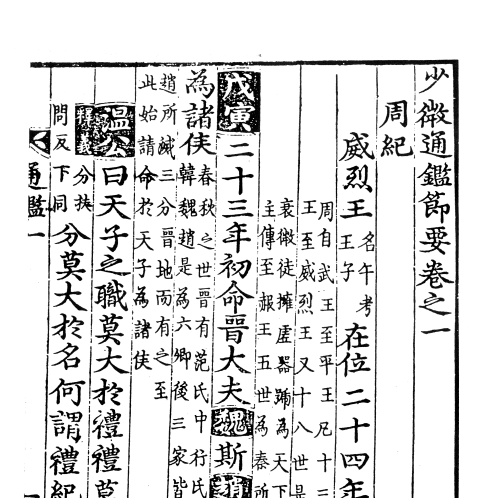 少微通鑑節要卷之一
周紀
威烈王
名午考
王子
在位二十四年
周自武王至平王凡十三
王至威烈王又十八世是
衰微徒擁虛器號為天下
主傳至赧王五世為秦所
戊寅二十三年初命晉大夫魏斯
為諸侯
春秋之世晉有范氏中行氏
韓魏趙是為六卿後三家皆
趙所滅三分晉地而有之至
此始請命於天子為諸侯
溫公曰天子之職莫大於禮禮莫
分扶
問反下同
分莫大於名何謂禮紀
通鑑一